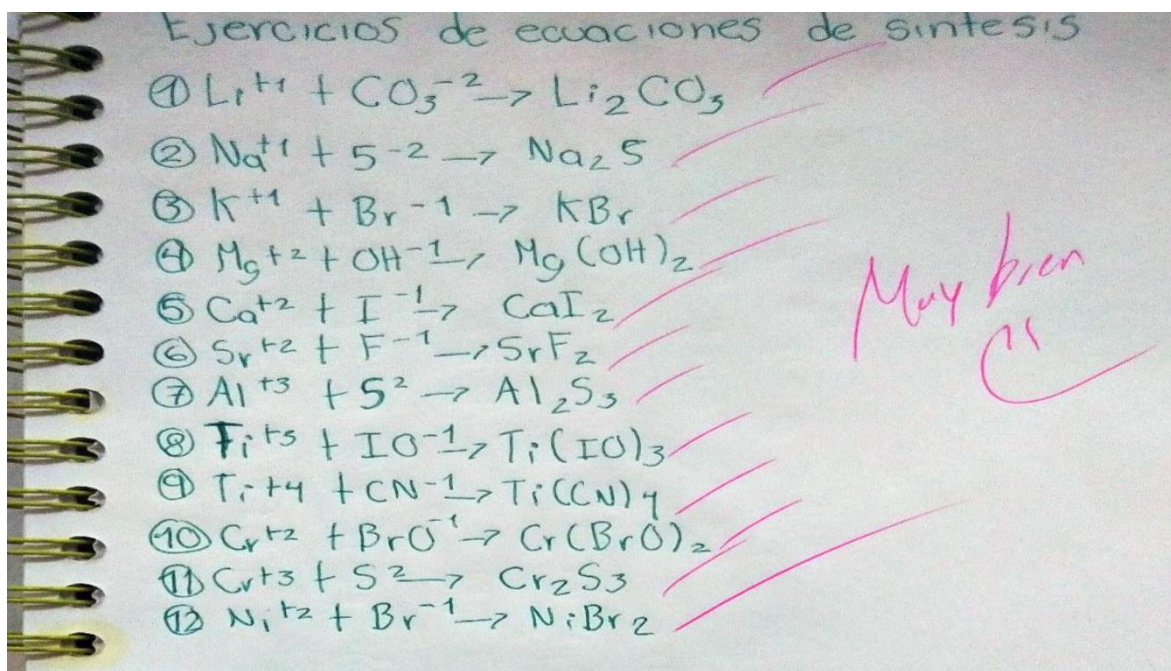 Ejercicios de ecuaciones de sintesis
① Li⁺¹ + CO₃⁻² → Li₂CO₃
② Na⁺¹ + S⁻² → Na₂S
③ K⁺¹ + Br⁻¹ → KBr
④ Mg⁺² + OH⁻¹ → Mg(OH)₂
⑤ Ca⁺² + I⁻¹ → CaI₂
⑥ Sr⁺² + F⁻¹ → SrF₂
⑦ Al⁺³ + S² → Al₂S₃
⑧ Ti⁺³ + IO⁻¹ → Ti(IO)₃
⑨ Ti⁺⁴ + CN⁻¹ → Ti(CN)₄
⑩ Cr⁺² + BrO⁻¹ → Cr(BrO)₂
⑪ Cr⁺³ + S² → Cr₂S₃
⑫ Ni⁺² + Br⁻¹ → NiBr₂
Muy bien